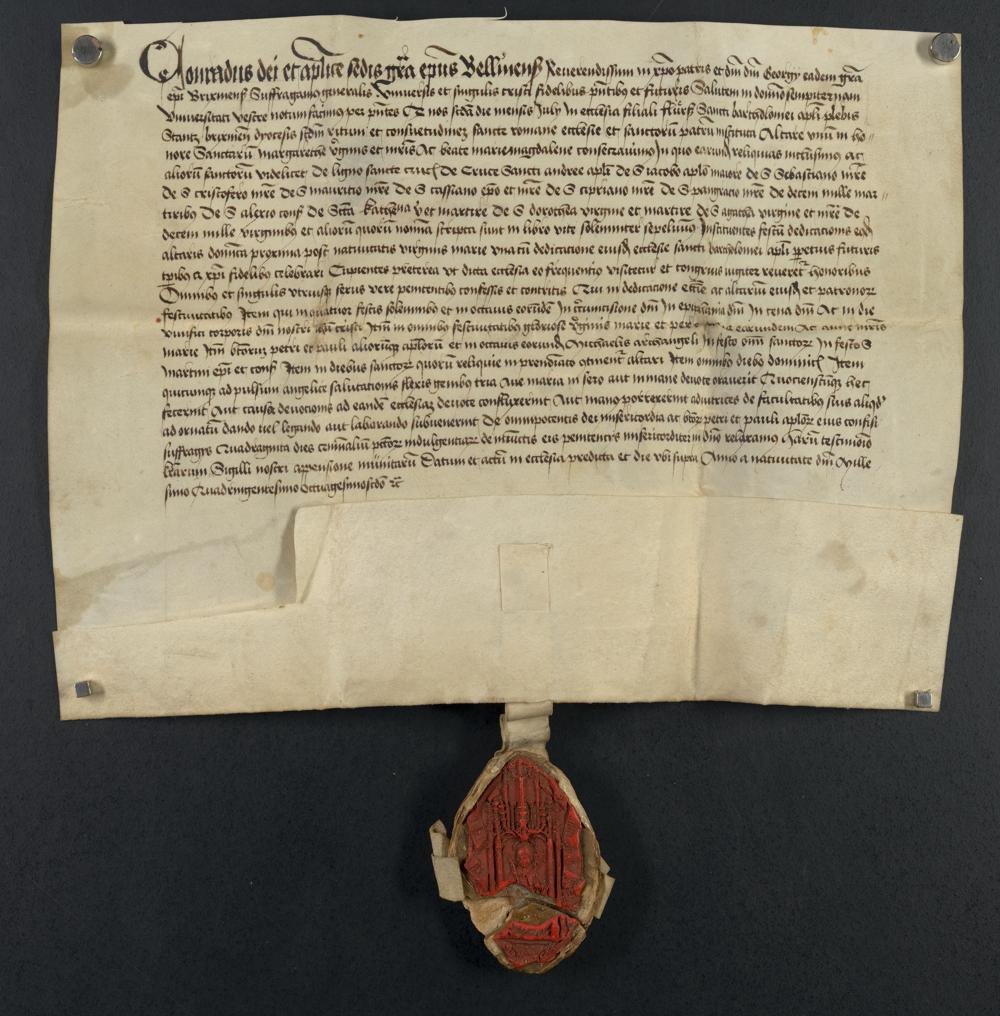 Conradus dei et aplice sedis gra epus Bellinens Reverendissimi in xpo patris et dni dni Georgy eadem gra
epi Brixinens Suffraganeus generalis Universis et singulis cristi fidelibus pntibus et futuris Salutem in domino sempiternam
Universitati vestre notum facimus per pntes Q nos scda die mensis July in ecclesia filiali Sancti bartholomei apli plebis
Stantz brixinen diocesis scdm ritum et consuetudinem sancte romane ecclesie et sanctorum patru instituta Altare unu in ho=
nore Sanctaru margarethe virginis et mris Ac beate marie magdalene consecravimus In quo earund reliquias inclusimus ac
alioru sanctoru videlicet De ligno sancte crucis De Cruce Sancti andree apli De S iacobo aplo maiore De S Sebastiano mre
de S cristofero mre De S mauritio mre De S cassiano epo et mre De S cipriano mre De S pangracio mre De decem mille mar=
tiribus De S alexio conf De Scta katherina v et martire De S dorothea virgine et martire De S agatha virgine et mre De
decem mille virginibus et alioru quoru nomina scripta sunt in libro vite solemniter sepelivimus Instituentes festu dedicationis eiusd
altaris dominica proxima post nativitatis virginis marie una cu dedicatione eiusd ecclesie sancti bartholomei apli ppetuis futuris
tpibus a xpi fidelibus celebrari Cupientes preterea ut dicta ecclesia eo frequentius visitetur et congruis iugiter reveret honoribus
Omnibus et singulis utriusq sexus vere penitentibus confessis et contritis Qui in dedicatione ecctie ac altarium eiusd et patronor
festivitatibus Item qui in quatuor festis solemnibus et in octavis eorunde In circumcisione dni In epiphania dni In cena dni Ac in die
vivifici corporis dni nostri cristi Itm in omnibus festivitatibus gloriose virginis marie et per earundem Ac anne mris
marie Itm btorum petri et pauli aliorumq aplorum et in octavis eorund Michaelis archangeli In festo omniu sanctor In festo S
martini epi et conf Item in diebus sanctor quoru reliquie in prenotato continent altari Item omnibus diebus dominicis Item
quicunque ad pulsum angelice salutationis flexis genibus tria Ave maria in sero aut in mane devote oraverit Quociensciq hec
fecerint Aut causa devocionis ad eande ecclesiam devote confluxerint Aut manus porrexerint adiutrices de facultatibus suis aliqd
ad ornatu dando vel legando aut laborando subvenerint De omnipotentis dei misericordia ac btor petri et pauli aplor eius confisi
suffragys Quadraginta dies criminalium pctor indulgentiar de iniunctis eis penitentys misericorditer in dno relaxamus Haru testimonio
lrarum Sigilli nostri appensione munitaru Datum et actu in ecclesia predicta et die ubi supra Anno a nativitate dni Mille
simo Quadringentesimo octuagesimoscdo etc